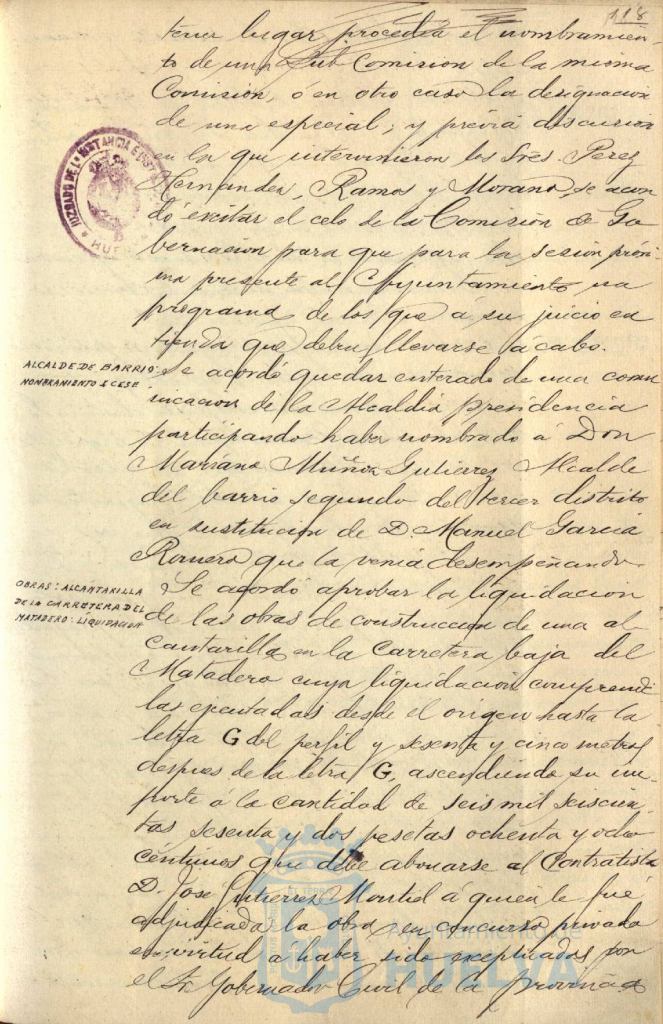 118
tener lugar procedia el nombramien-
to de una Sub Comision de la misma
Comisión, ó en otro caso la designacion
de una especial; y previa discusion
en la que intervinieron los Sres. Perez
Hernandez, Ramos y Morano, se acor
dó éxcitar el celo de la Comisión de Go
bernacion para que para la sesión próxi
ma presente al Ayuntamiento un
programa de los que á su juicio en
tienda que deben llevarse á cabo.
JUZGADO DE 1ª INSTANCIA E INST
HUE
ALCALDE DE BARRIO:
NOMBRAMIENTO & CESE
Se acordó quedar enterado de una comu
nicacion de la Alcaldia presidencia
participando haber nombrado á Don
Mariano Muñoz Gutierrez Alcalde
del barrio segundo del tercer distrito
en sustitucion de D. Manuel Garcia
Romero que la venia desempeñando.
OBRAS: ALCANTARILLA
DE LA CARRETERA DEL
MATADERO: LIQUIDACION
Se acordó aprobar la liquidacion
de las obras de construccion de una al
cantarilla en la Carretera baja del
Matadero cuya liquidacion comprende
las ejecutadas desde el origen hasta la
letra G del perfil y sesenta y cinco metros
despues de la letra G, ascendiendo su im
porte á la cantidad de seis mil seiscien
tas sesenta y dos pesetas ochenta y ocho
centimos que debe abonarse al Contratista
D. Jose Gutierrez Montiel á quien le fué
adjudicada la obra en concurso privado
en virtud á haber sido exceptuadas por
el Sr. Gobernador Civil de la provincia
HUELVA